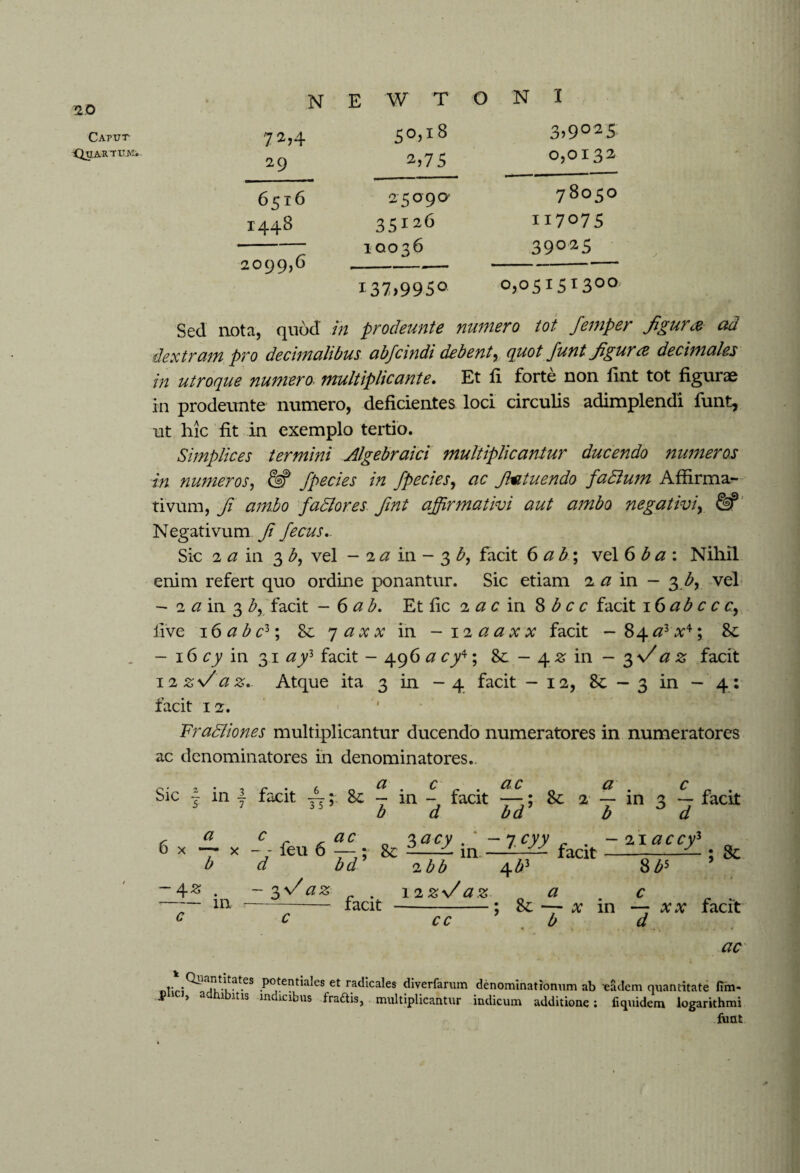 20
NEWTONI
CAPUT
QUARTUM.
72,4 50,18 3,9025
29 2,75 0,0132
6516 25090 78050
1448 35126 117075
2099,6 10036 39025
137,9950 0,05151300
Sed nota, quòd in prodeunte numero tot semper figuræ ad
dextram pro decimalibus abscindi debent, quot sunt figuræ decimales
in utroque numero multiplicante. Et si fortè non sint tot figuræ
in prodeunte numero, deficientes loci circulis adimplendi sunt,
ut hîc fit in exemplo tertio.
Simplices termini Algebraici multiplicantur ducendo numeros
in numeros, & species in species, ac statuendo factum Affirma-
tivum, si ambo factores sint affirmativi aut ambo negativi, &
Negativum si secus.
Sic 2 a in 3 b, vel − 2 a in − 3 b, facit 6 a b; vel 6 b a : Nihil
enim refert quo ordine ponantur. Sic etiam 2 a in − 3 b, vel
− 2 a in 3 b, facit − 6 a b. Et sic 2 a c in 8 b c c facit 16 a b c c c,
sive 16 a b c³; & 7 a x x in − 12 a a x x facit − 84 a³ x⁴; &
− 16 c y in 31 a y³ facit − 496 a c y⁴; & − 4 z in − 3 √ a z facit
12 z √ a z. Atque ita 3 in − 4 facit − 12, & − 3 in − 4:
facit 12.
Fractiones multiplicantur ducendo numeratores in numeratores
ac denominatores in denominatores.
Sic 2/5 in 3/7 facit 6/35; & a/b in c/d facit ac/bd; & 2 a/b in 3 c/d facit
6 × a/b × c/d seu 6 ac/bd; & 3acy/2bb in −7cyy/4b³ facit −21accy³/8b⁵; &
−4z/c in −3√az/c facit 12z√az/cc; & a/b x in c/d xx facit
ac
* Quantitates potentiales et radicales diversarum denominationum ab eâdem quantitate sim-
plici, adhibitis indicibus fractis, multiplicantur indicum additione: siquidem logarithmi
sunt